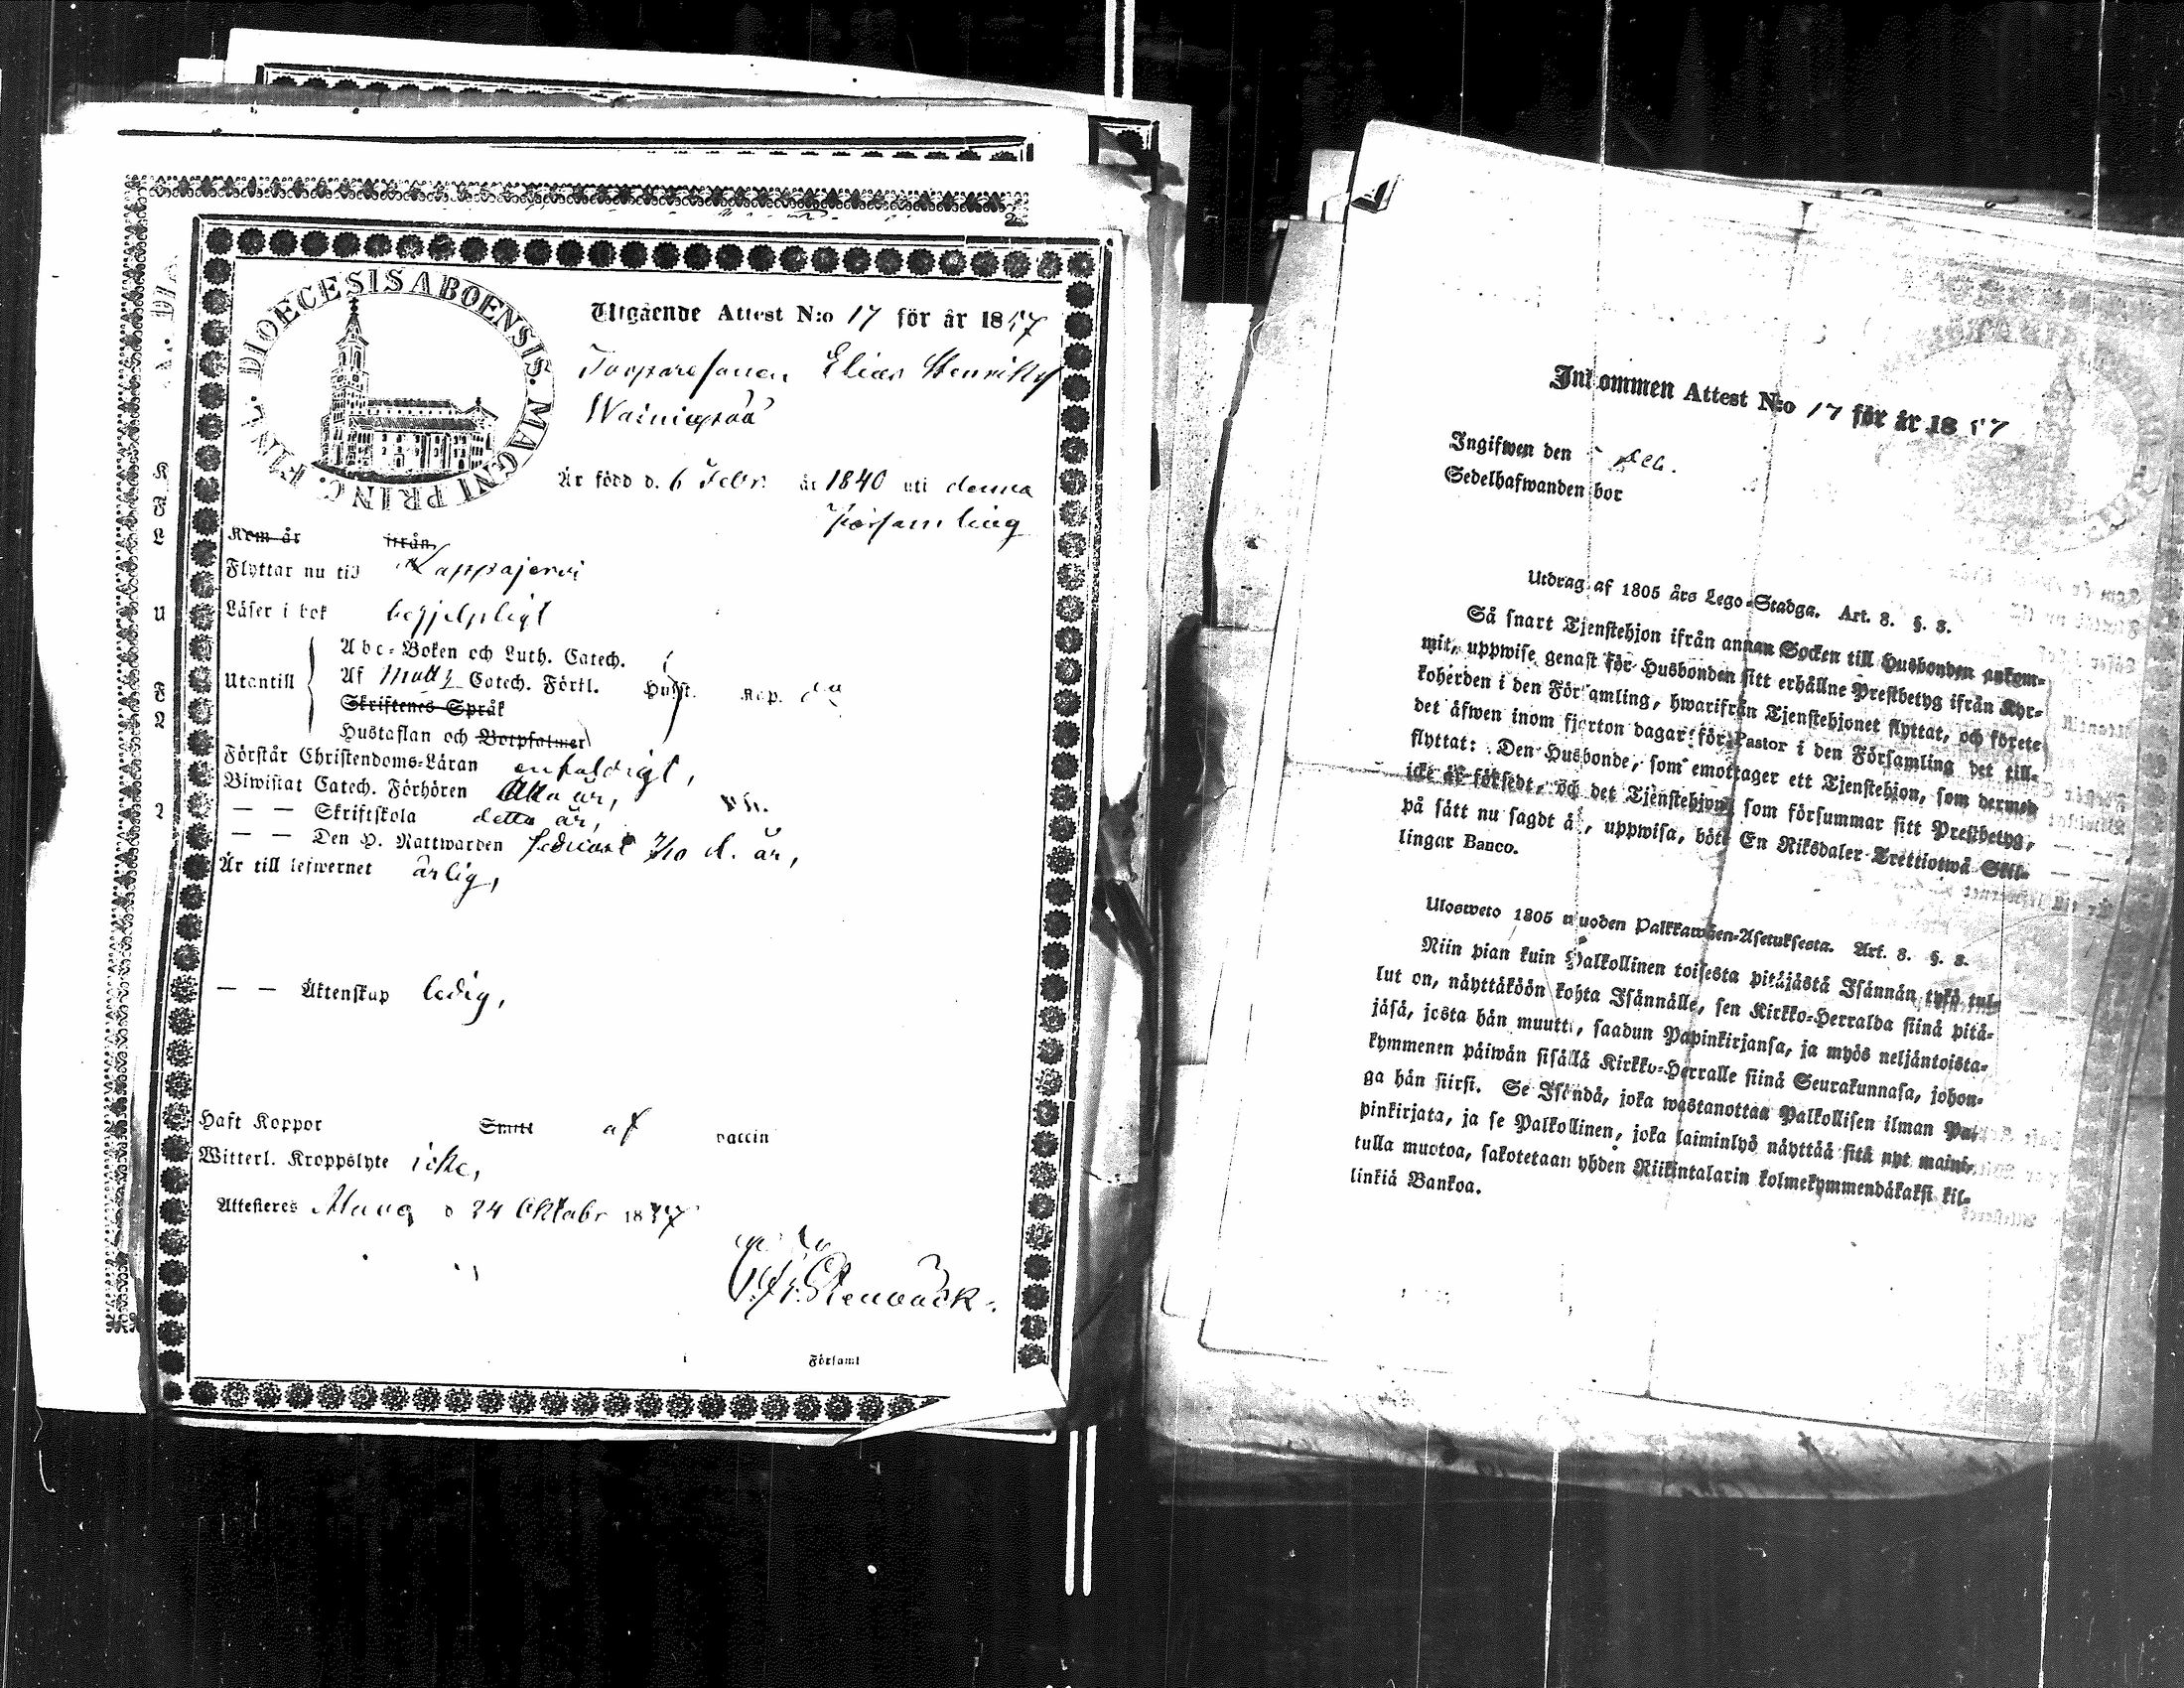 DIOECESIS ABOENSIS. MAGNI PRINC. FINL.
Utgående Attest N:o 17 för år 1857
Torparesonen Elias Henriksf
Wainiopää
Är född d. 6 Febr. år 1840 uti denna
Församling
Kom år ifrån
Flyttar nu till Lappajervi
Läser i bok hjelpligt
Utantill
Abc-Boken och Luth. Catech.
Af Catech. Förkl. Husst. Kap.
Skriftenes Språk
Hustaflan och Botpsalmer
Förstår Christendoms-Läran enfaldigt,
Biwistat Catech. Förhören Alla år,
— — Skriftskola detta år,
— — Den H. Nattwarden sednast 7/10 d. år,
Är till lefwernet ärlig,
— — Äktenskap ledig,
Haft Koppor Smitt af vaccin
Witterl. Kroppslyte icke,
Attesteras d 24 Oktobr 1857
Stenbäck.
Församl
Inkommen Attest N:o 17 för år 1857
Ingifwen den
Sedelhafwanden bor
Utdrag af 1805 års Lego-Stadga. Art. 8. §. 3.
Så snart Tjenstehjon ifrån annan Socken till Husbonden ankom-
mit, uppwise genast för Husbonden sitt erhållne Prestbetyg ifrån Kyr-
koherden i den Församling, hwarifrån Tjenstehjonet flyttat, och förete
det äfwen inom fjorton dagar för Pastor i den Församling det till-
flyttat: Den Husbonde, som emottager ett Tjenstehjon, som dermed
icke är försedt, och det Tjenstehjon, som försummar sitt Prestbetyg,
på sätt nu sagdt är, uppwisa, böte En Riksdaler Trettiotwå Skil-
lingar Banco.
Ulosweto 1805 wuoden Palkkawäen-Asetuksesta. Art. 8. §. 3.
Niin pian kuin Palkollinen toisesta pitäjästä Isännän tykö tul-
lut on, näyttäköön kohta Isännälle, sen Kirkko-Herralda siinä pitä-
jäsä, josta hän muutti, saadun Papinkirjansa, ja myös neljäntoista-
kymmenen päiwän sisällä Kirkko-Herralle siinä Seurakunnasa, johon-
ga hän siirsi. Se Isändä, joka wastanottaa Palkollisen ilman Pa-
pinkirjata, ja se Palkollinen, joka laiminlyö näyttää sitä nyt maini-
tulla muotoa, sakotetaan yhden Riikintalarin kolmekymmendäkaksi kil-
linkiä Bankoa.